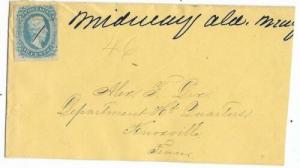 Midway Ala. May
46
Alex F. Dix
Department Hd Quarters
Knoxville
Tenn